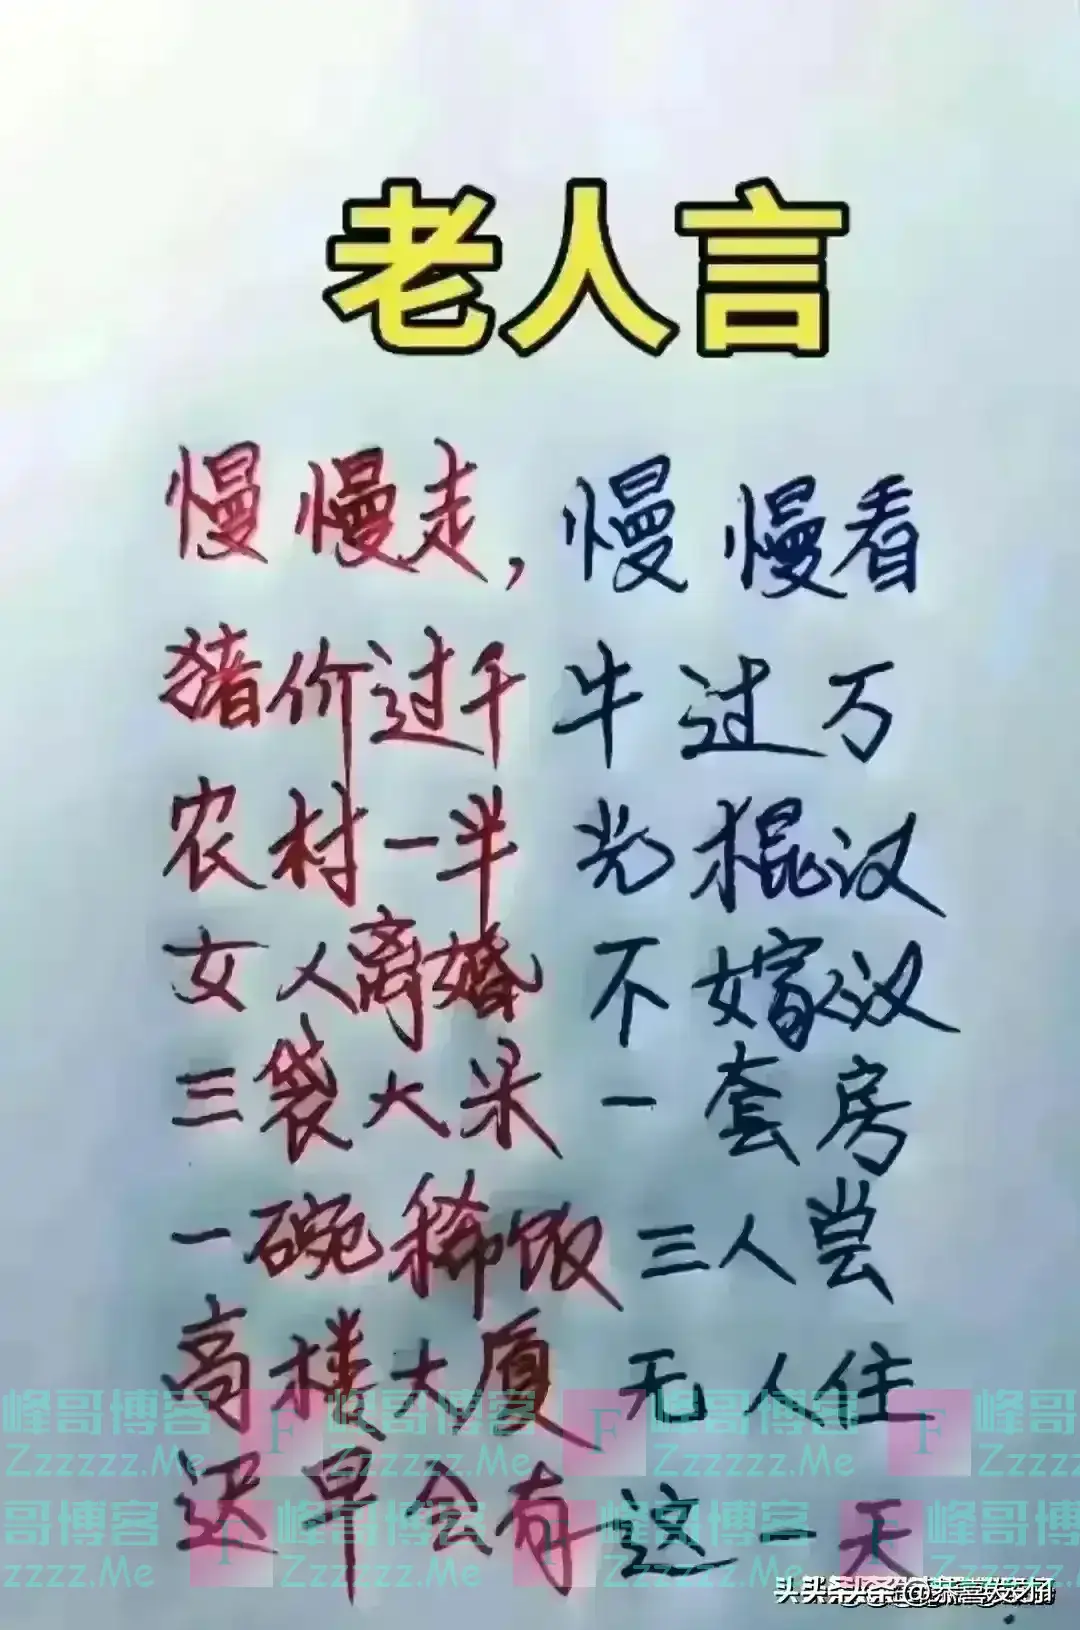 老人言
慢慢走，慢慢看
猪价过千 牛过万
农村一半 光棍汉
女人离婚 不嫁汉
三袋大米 一套房
一碗稀饭 三人尝
高楼大厦 无人住
峰哥博客 F 峰哥博客 F 峰哥博客 F 峰哥博客
Zzzzzz.Me Zzzzzz.Me Zzzzzz.Me Zzzzz
迟早会有 这一天
哥博客 F 峰哥博客 F 峰哥博客 F 峰哥博
zzzz.Me Zzzzzz.Me Zzzzzz.Me
头条 @恭喜发财